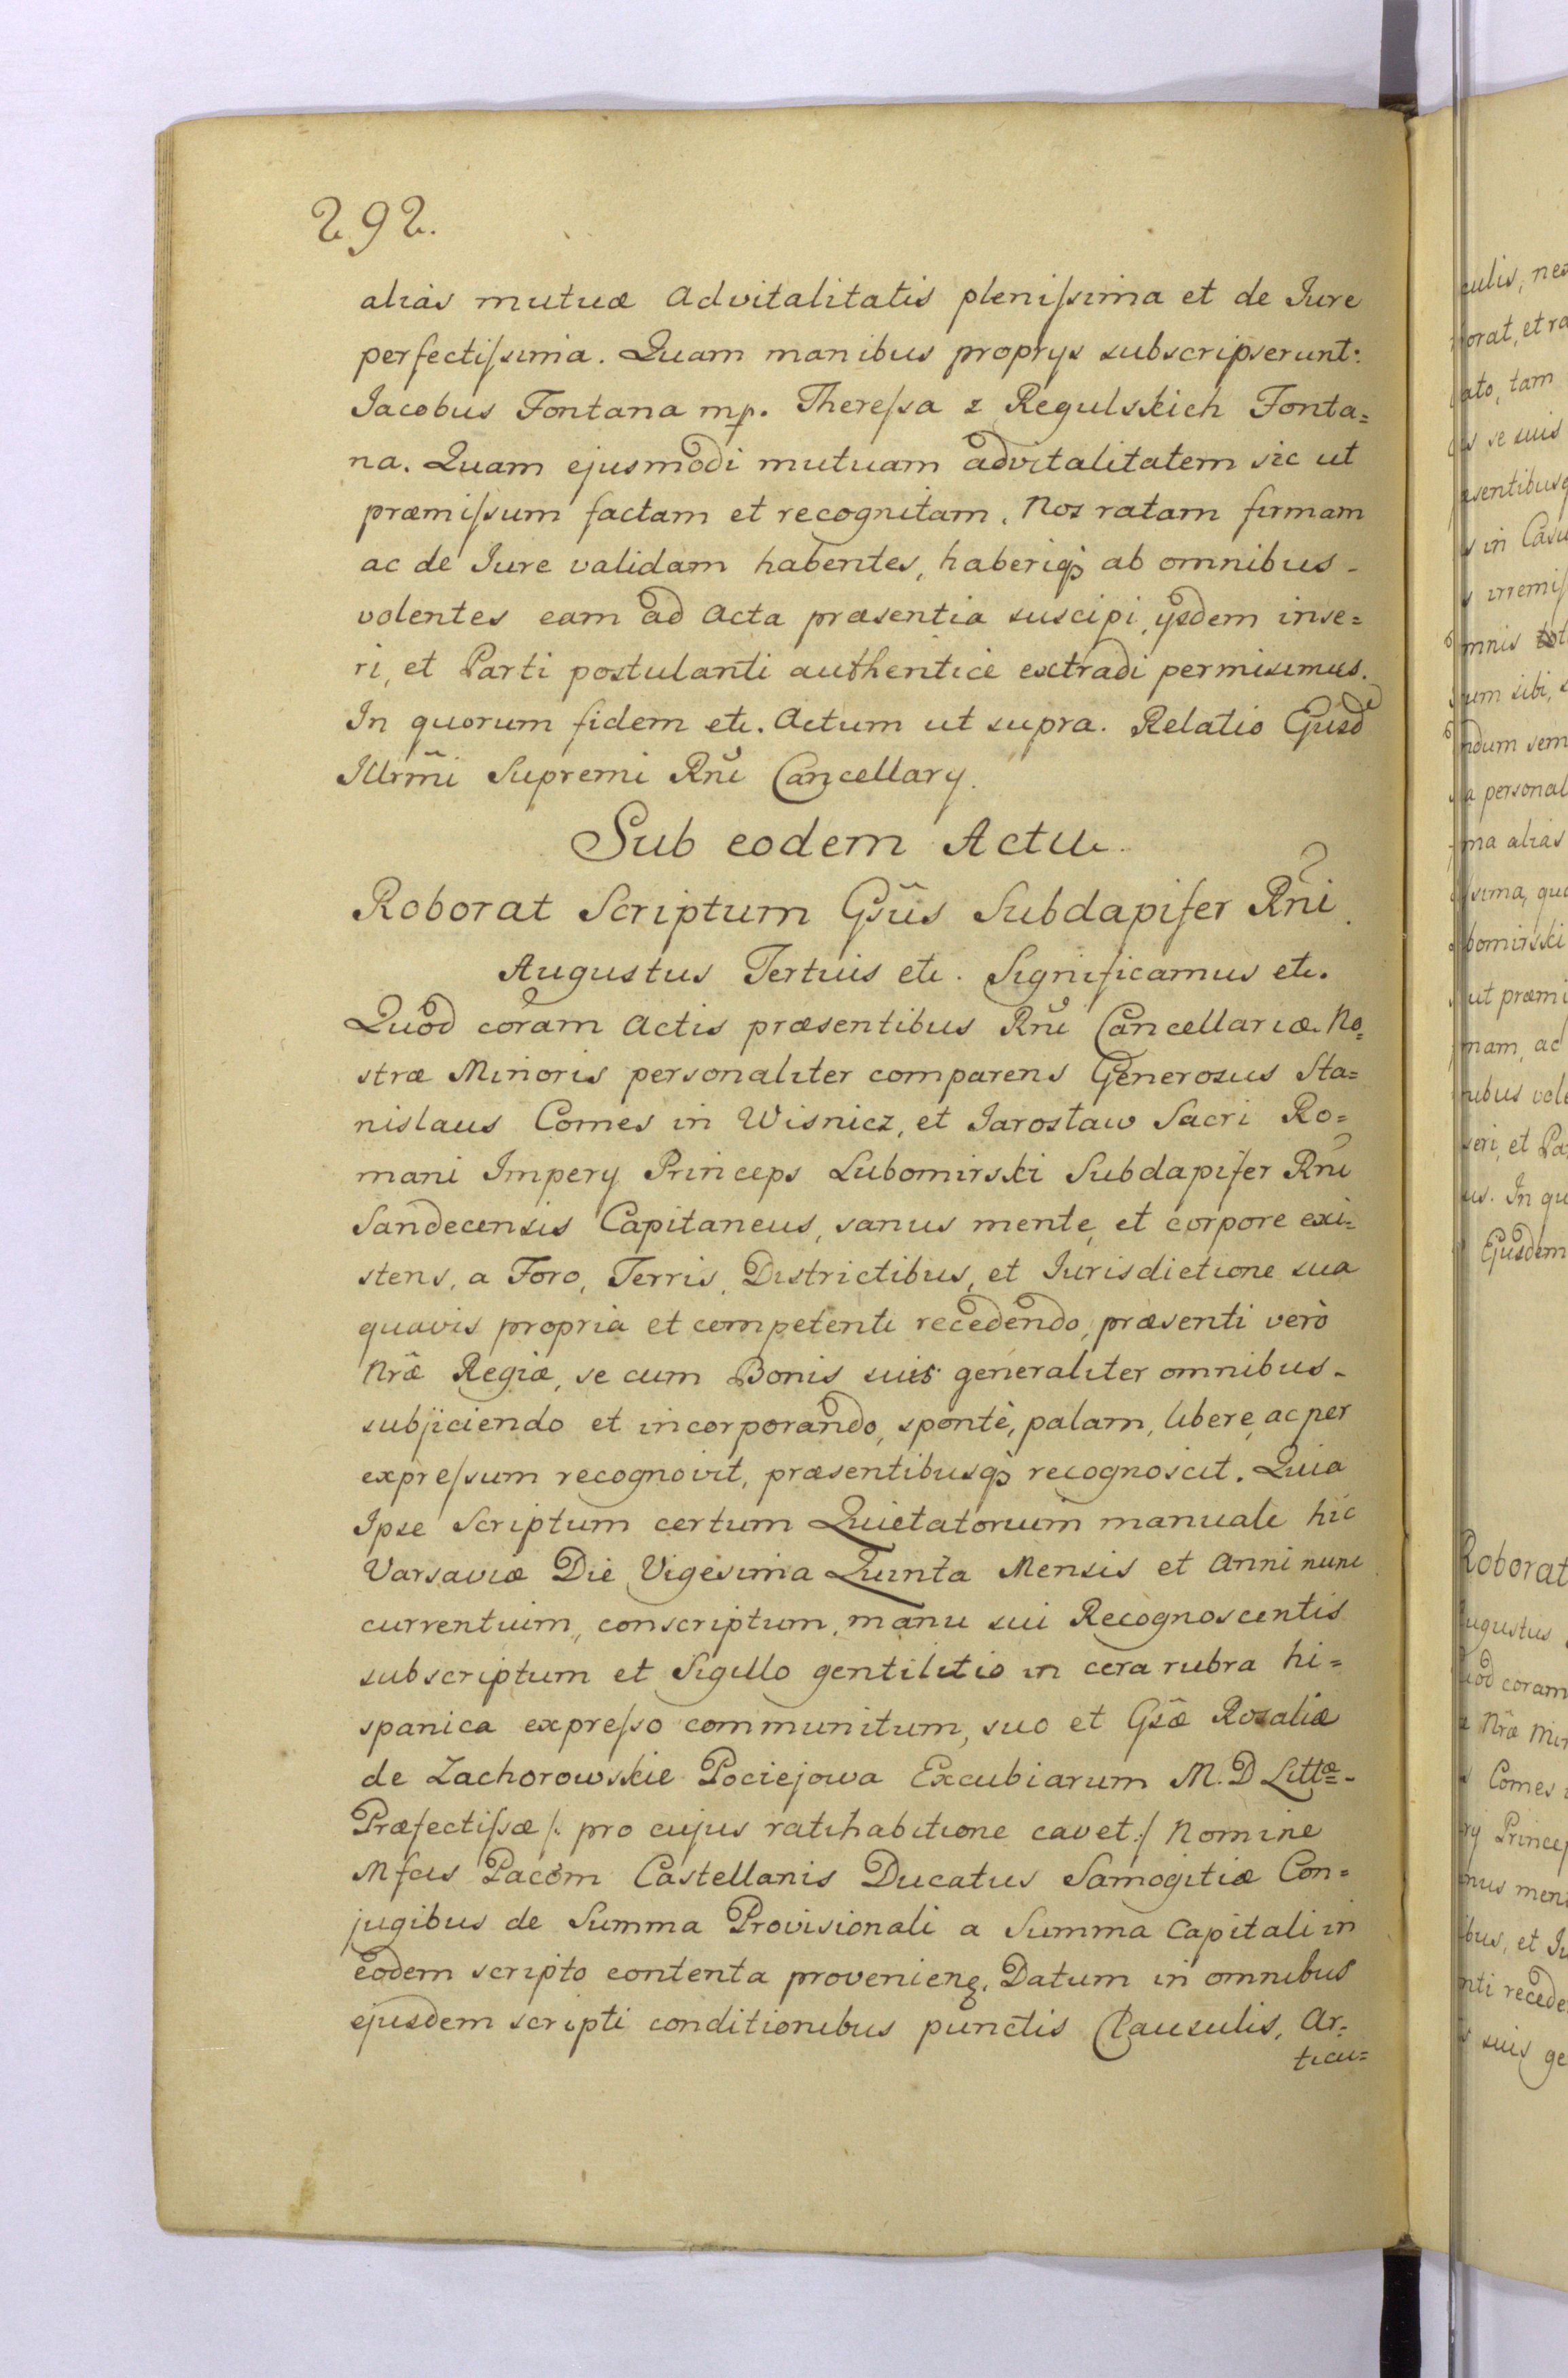 292.
aliàs mutuæ Advitalitatis pleniſsima et de Jure
perfectiſsima. Quam manibus proprys subscripserunt:
Jacobus Fontana mp. Thereſsa z Regulskich Fonta=
na. Quam ejusmodi mutuam advitalitatem sic ut
præmiſsum factam et recognitam, Nos ratam firmam
ac de Jure validam habentes, haberiq₃ ab omnibus -
volentes eam ad Acta præsentia suscipi, ysdem inse=
ri, et Parti postulanti authenticè extradi permisimus.
In quorum fidem etc. Actum ut supra. Relatio Ejusd
Illrmi Supremi Rni Cancellary.
Sub eodem Actu.
Roborat Scriptum Gsus Subdapifer Rni.
Augustus Tertius etc. Significamus etc.
Quod coram Actis præsentibus Rni Cancellariæ No=
stræ Minoris personaliter comparens Generosus Sta=
nislaus Comes in Wisnicz, et Jarosław Sacri Ro=
mani Impery Princeps Lubomirski Subdapifer Rni
Sandecensis Capitaneus, sanus mente, et corpore exi=
stens, a Foro, Terris, Districtibus, et Jurisdictione sua
quavis propria et competenti recedendo, præsenti verò
Nræ Regiæ, se cum Bonis suis generaliter omnibus -
subjiciendo et incorporando, spontè, palam, libere, ac per
expreſsum recognovit, præsentibusq₃ recognoscit. Quia
Ipse Scriptum certum Quietatorium manuale hic
Varsaviæ Die Vigesima Quinta Mensis et Anni nunc
currentium, conscriptum, manu sui Recognoscentis
subscriptum et Sigillo gentilitio in cera rubra hi=
spanica expreſso communitum, suo et Gsæ Rozaliæ
de Zachorowskie Pociejowa Excubiarum M. D Littæ -
Præfectiſsæ /: pro cujus ratihabitione cavet :/ Nomine
Mfcis Pacom Castellanis Ducatus Samogitiæ Con=
jugibus de Summa Provisionali a Summa Capitali in
eodem scripto contenta provenien. Datum in omnibus
ejusdem scripti conditionibus punctis Clausulis, Ar=
ticu=